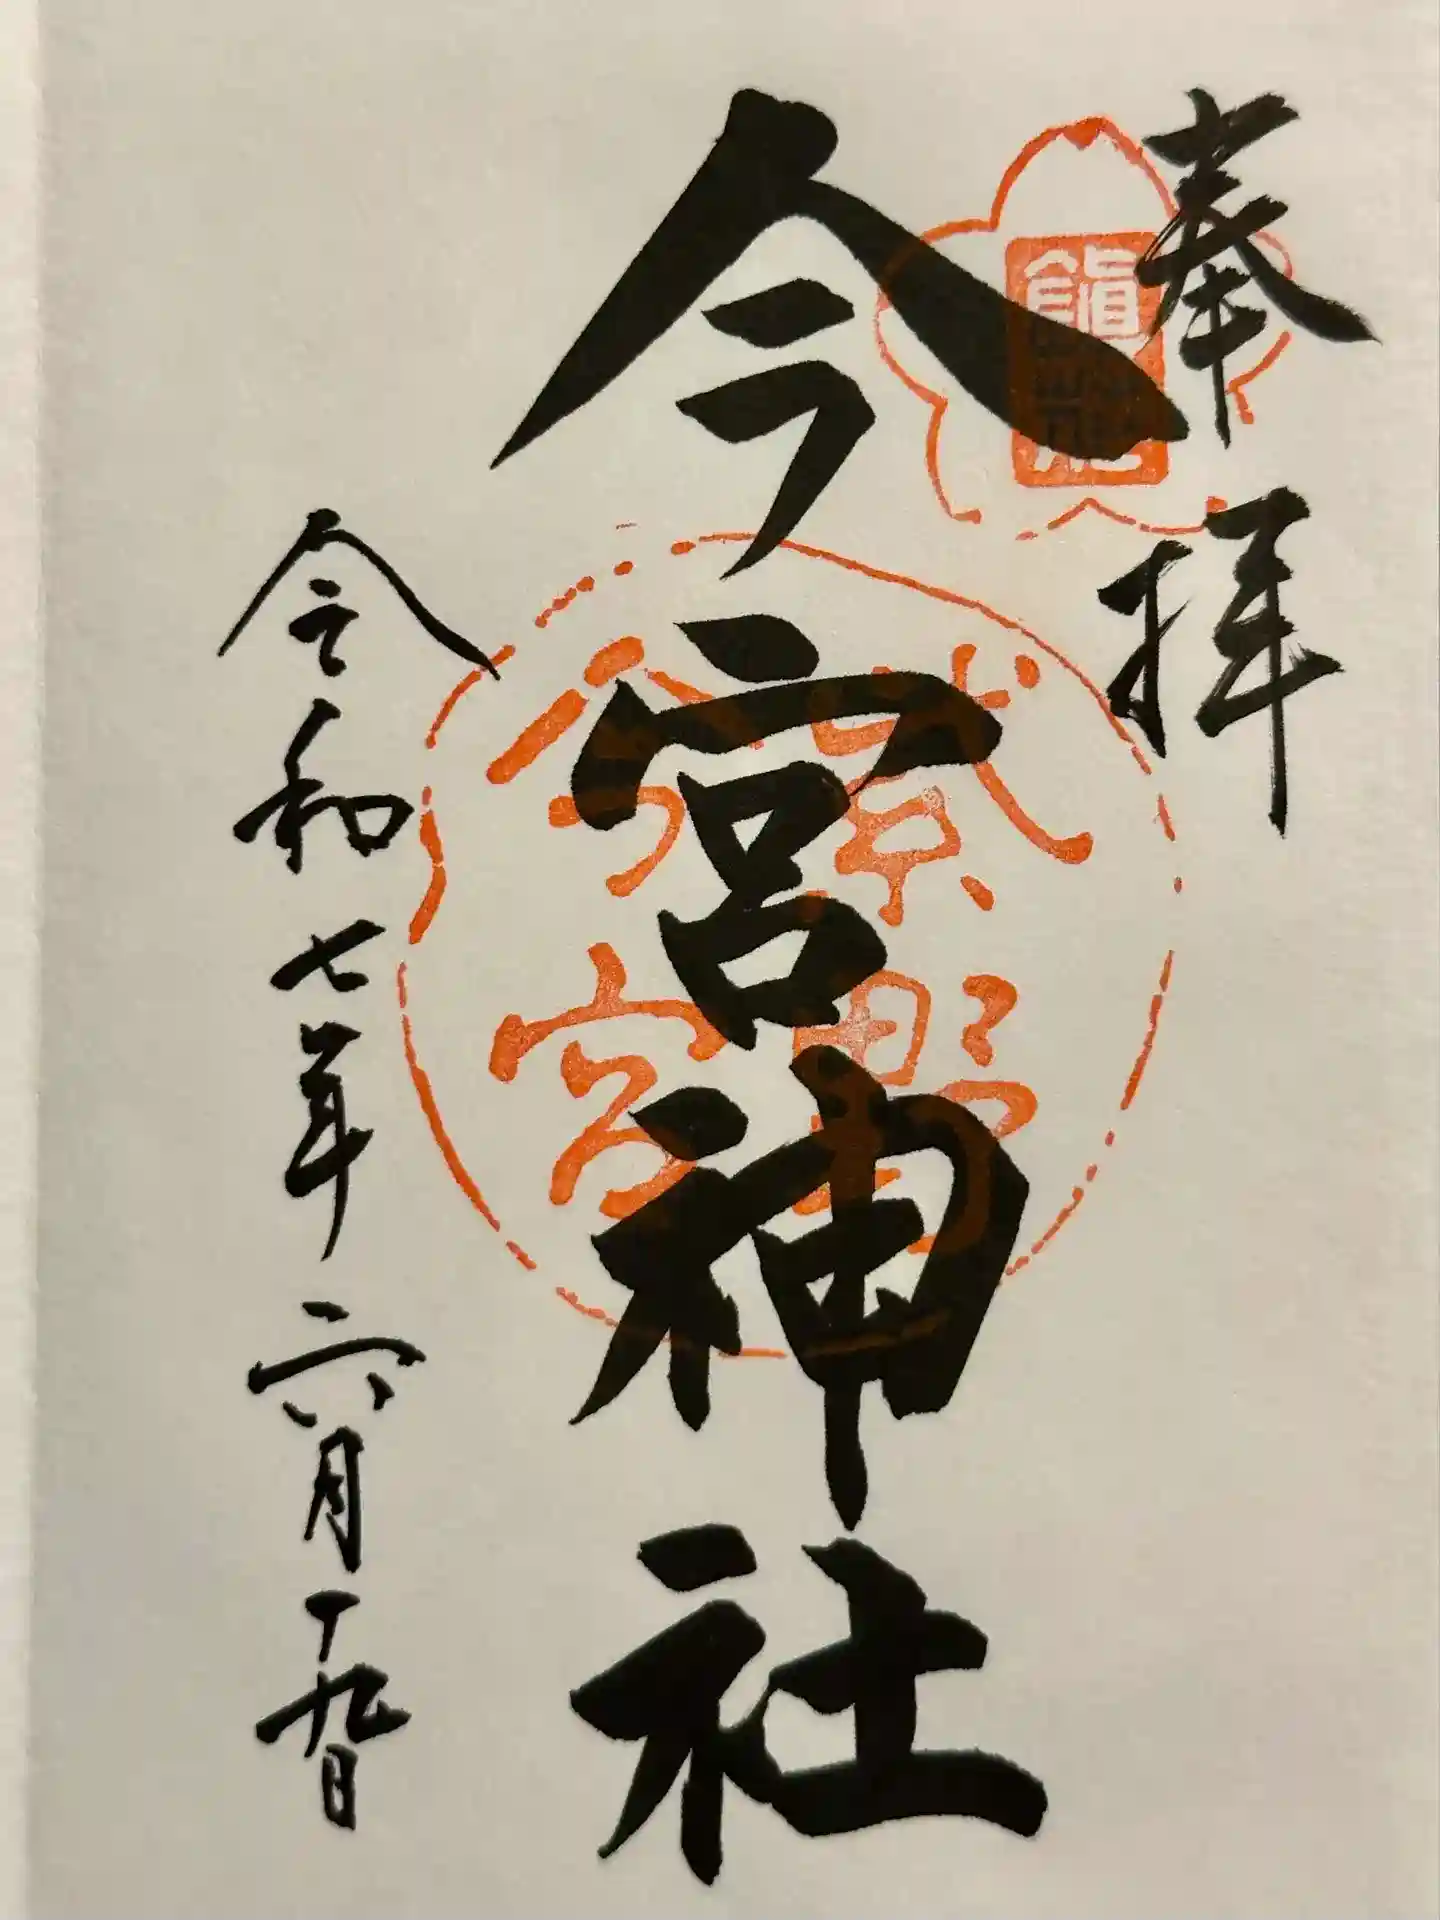 奉拝
今宮神社
紫野
今宮
令和七年六月十九日